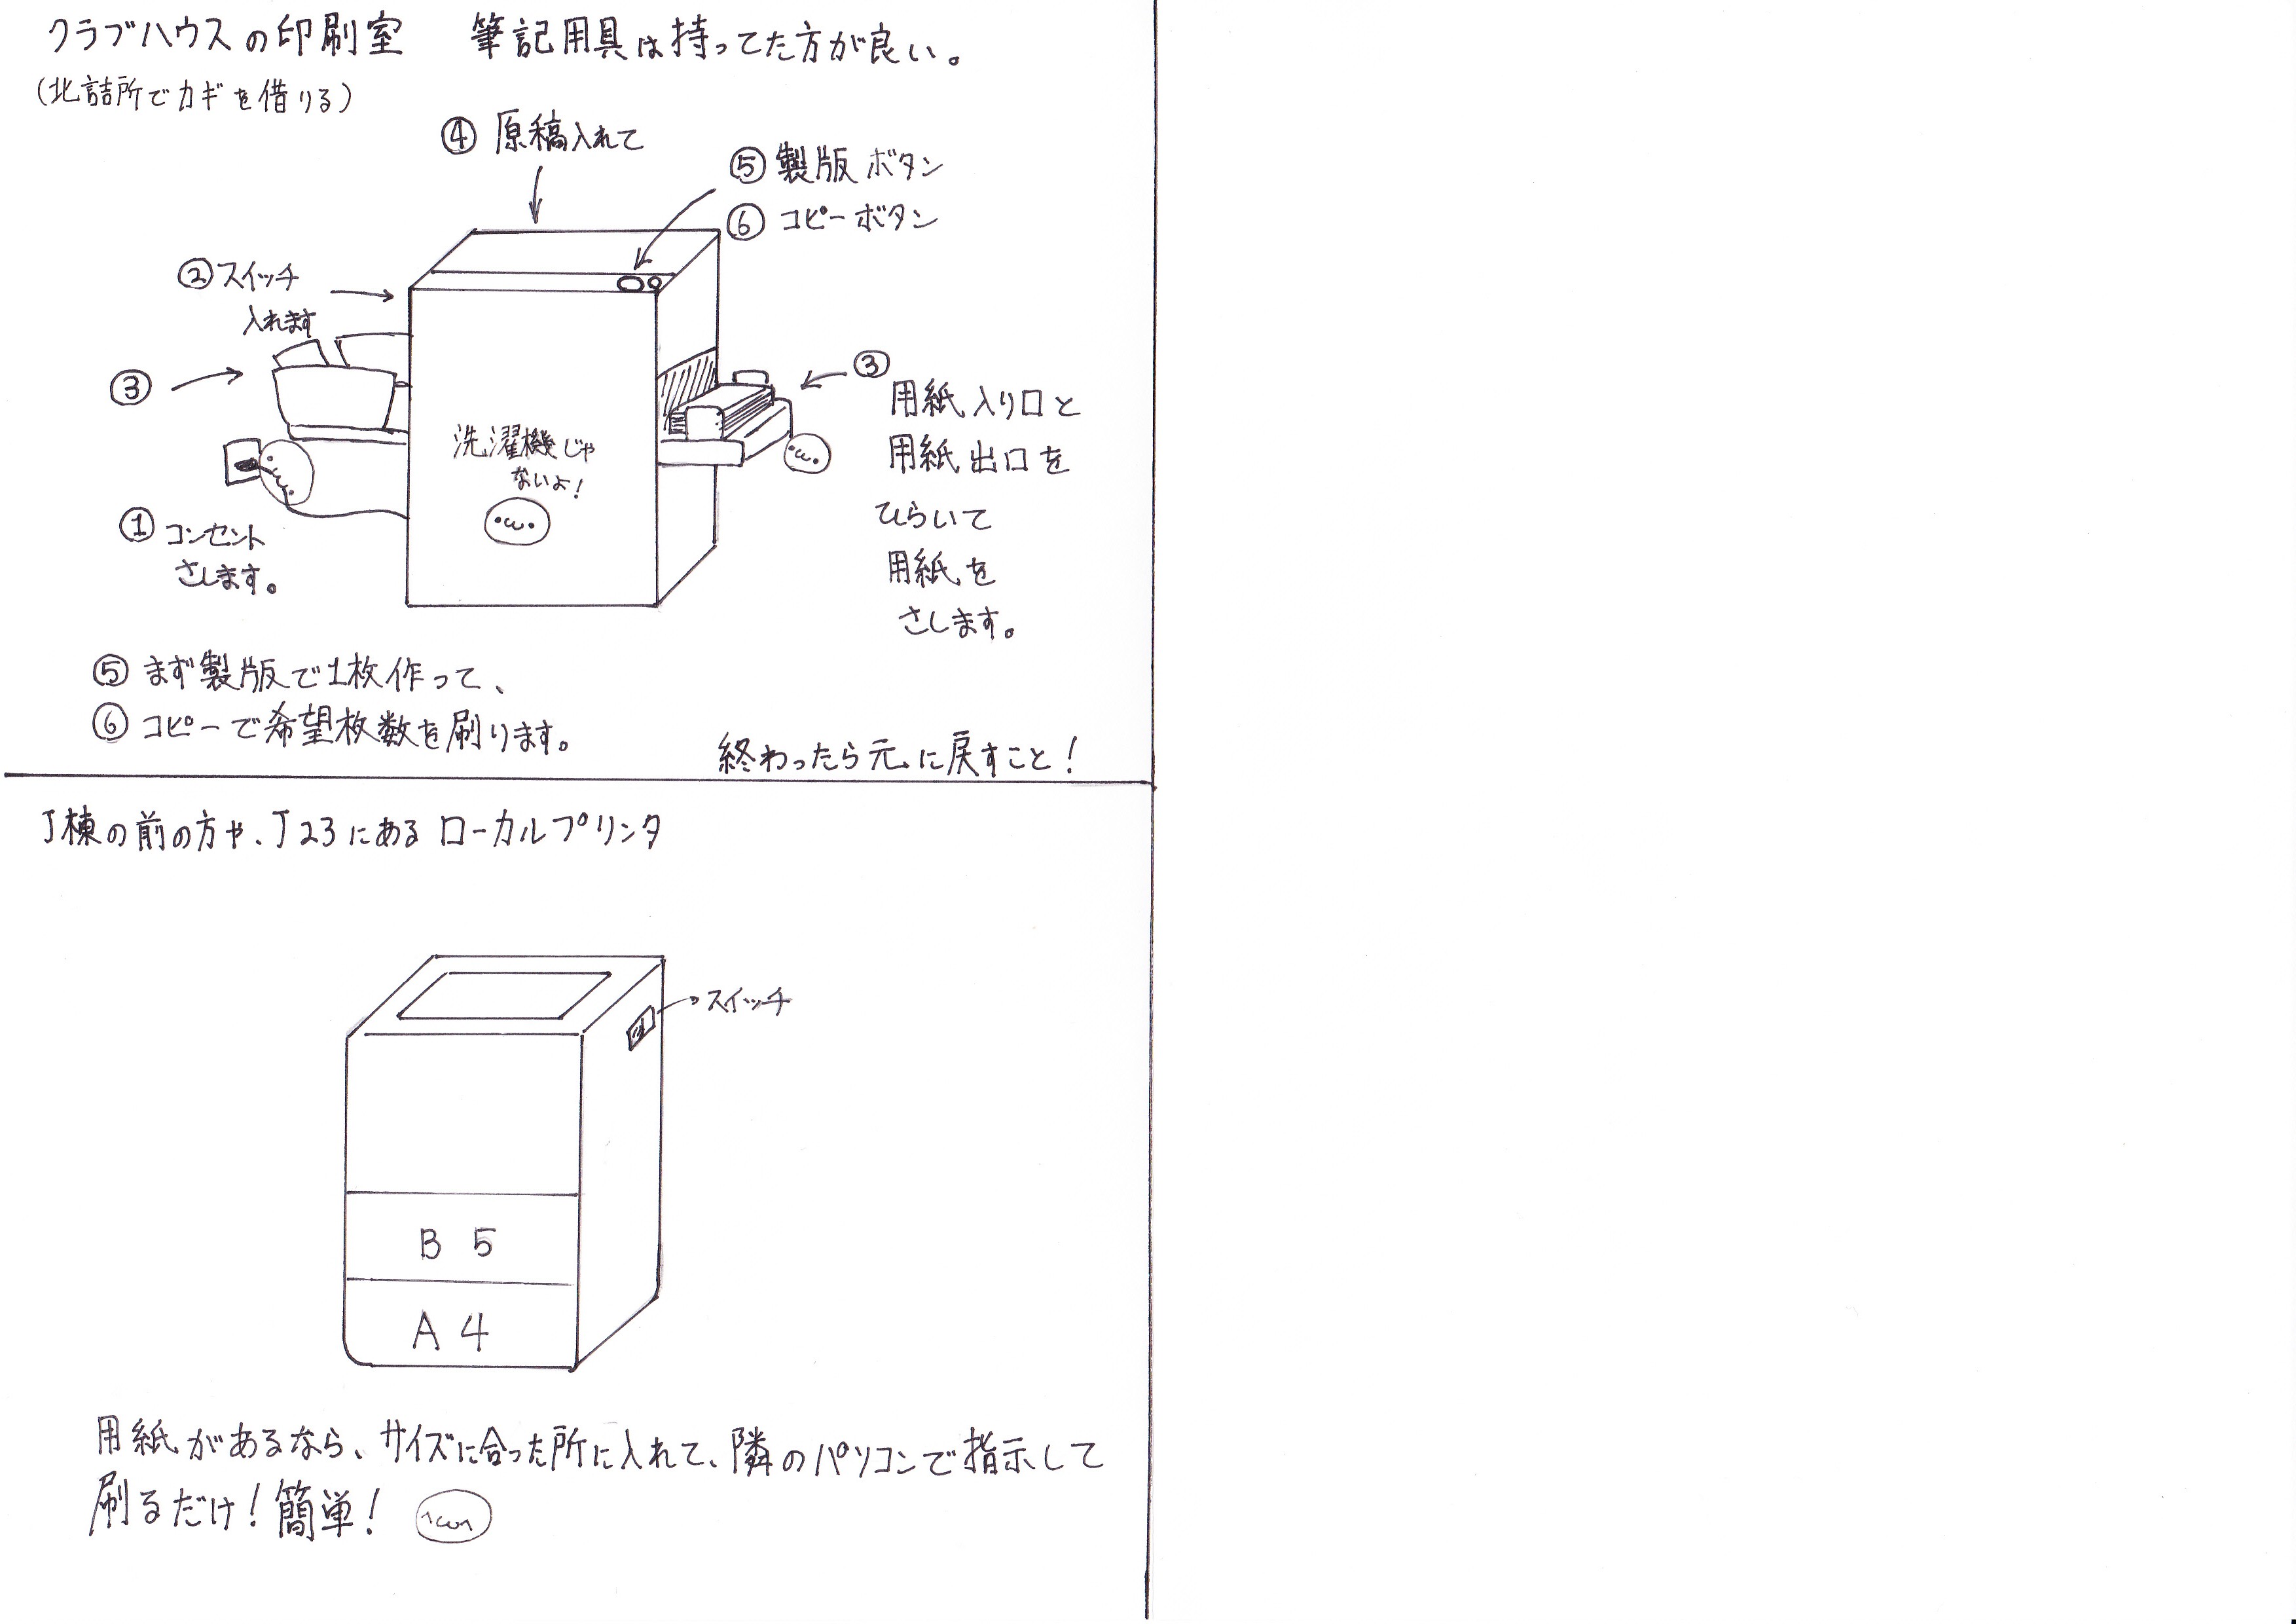 クラブハウスの印刷室　筆記用具は持ってた方が良い。
(北詰所でカギを借りる)
④ 原稿入れて
⑤ 製版ボタン
⑥ コピーボタン
② スイッチ
入れます
③
③
用紙入り口と
用紙出口を
ひらいて
用紙を
さします。
洗濯機じゃ
ないよ！
① コンセント
さします。
⑤ まず製版で1枚作って、
⑥ コピーで希望枚数を刷ります。
終わったら元に戻すこと！
J棟の前の方や、J23にあるローカルプリンタ
スイッチ
B5
A4
用紙があるなら、サイズに合った所に入れて、隣のパソコンで指示して
刷るだけ！簡単！